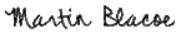 Martin Blacoe